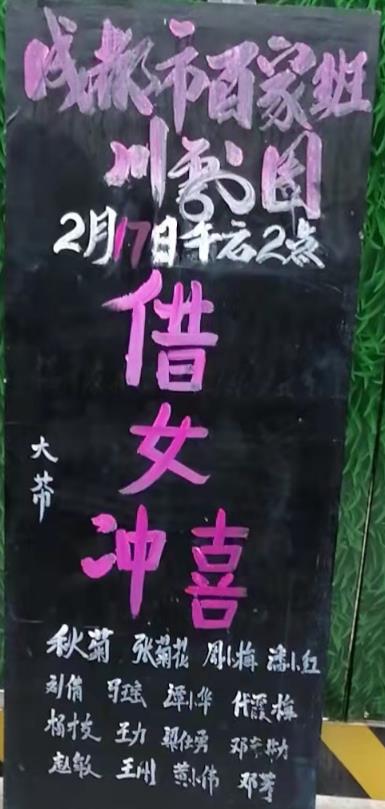 成都市百家班
川剧团
2月17日午后2点
借女
冲喜
大幕
秋菊 张菊花 周小梅 潘小红
刘倩 马瑶 谭小华 代霞梅
杨才友 王力 梁仕勇
赵敏 王州 黄小伟 邓芳